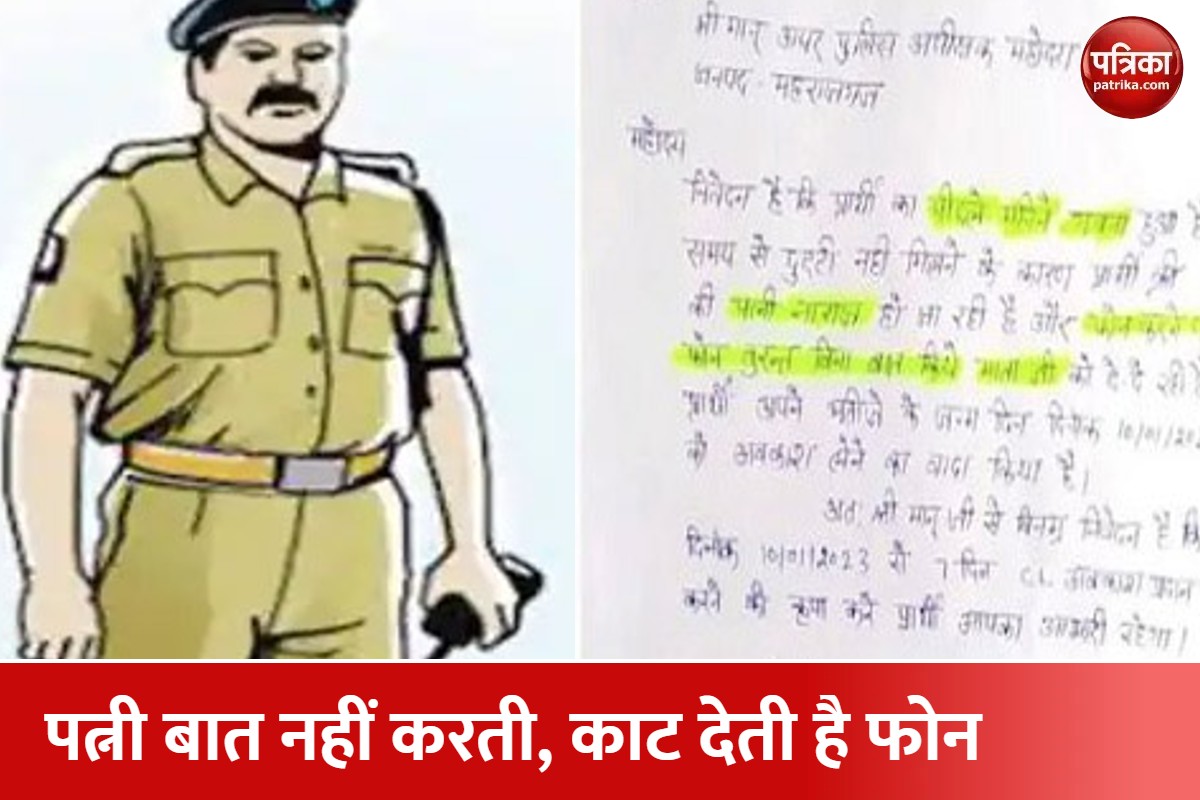 श्री मान् अपर पुलिस अधीक्षक महोदय
जनपद - महराजगंज
पत्रिका
patrika.com
महोदय
निवेदन है कि प्रार्थी का पीछले महिने गवना हुआ है
समय से छुट्टी नही मिलने के कारण प्रार्थी की
की पत्नी नाराज हो जा रही है और फोन करने
फोन तुरन्त बिना बात किये माता जी को दे दे रही है
प्रार्थी अपने भतीजे के जन्म दिन दिनांक 10/01/202
को अवकाश लेने का वादा किया है।
अतः श्री मान् जी से विनम्र निवेदन है कि
दिनांक 10/01/2023 से 7 दिन CL अवकाश प्रदान
करने की कृपा करे प्रार्थी आपका आभारी रहेगा।
पत्नी बात नहीं करती, काट देती है फोन